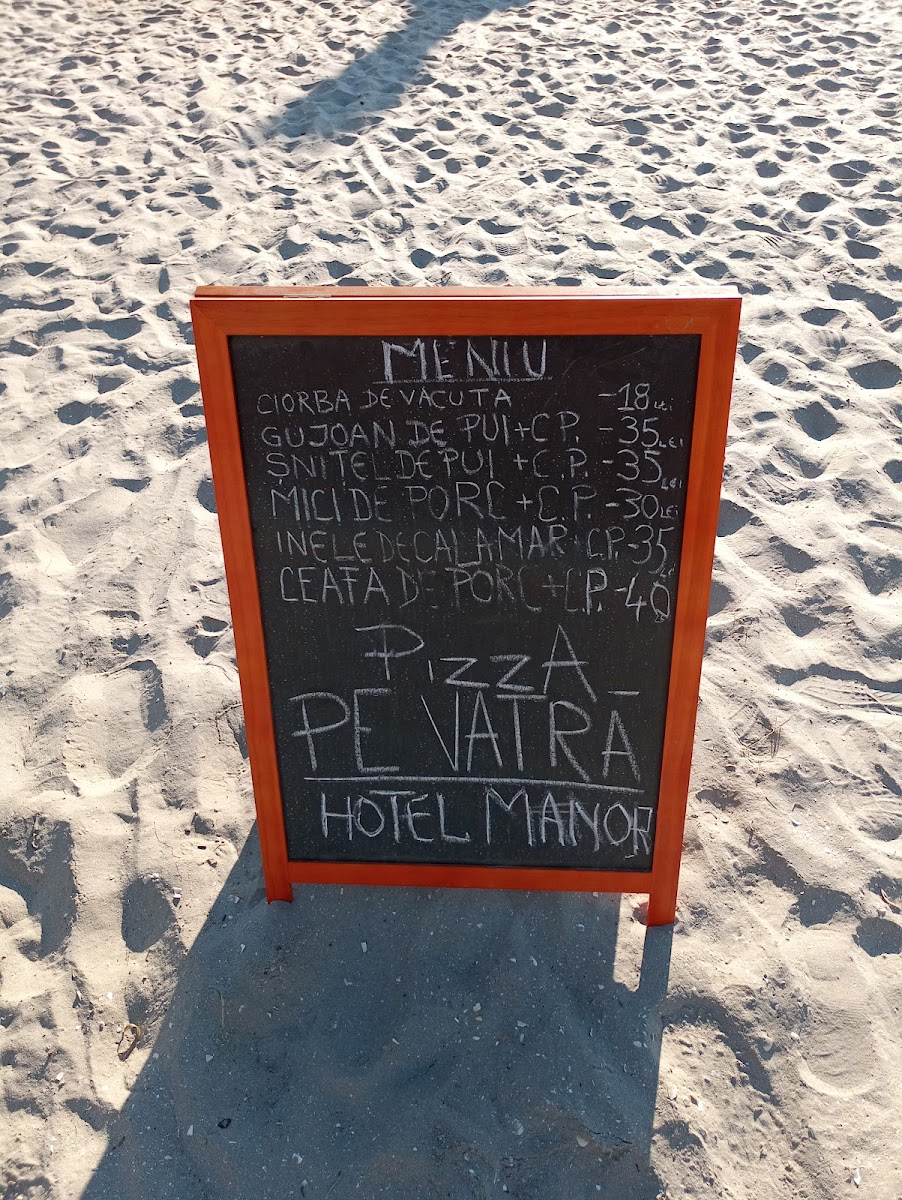 MENIU
CIORBA DE VACUTA -18 LEI
GUJOAN DE PUI+C P. -35 LEI
ȘNIȚEL DE PUI +C.P. -35 LEI
MICI DE PORC +C.P. -30 LEI
INELE DE CALAMAR+C.P. -35
CEAFA DE PORC +C.P. -40
PizzA
PE VATRĂ
HOTEL MANOR